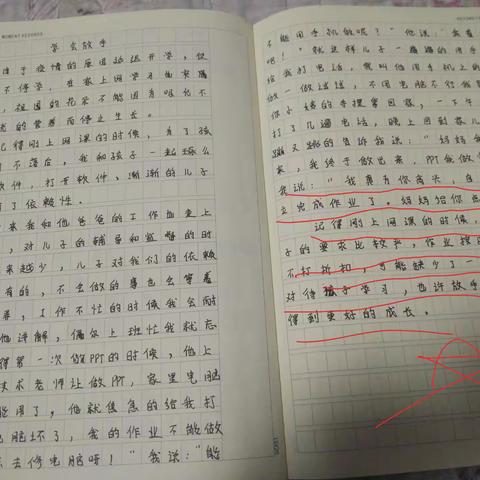 MOMENT RECORDS
学会放手
由于疫情的原因延迟开学，但
不停学，在家上网学习由家属
，祖国的花朵不能因为吸允不
的营养而停止生长。
记得刚上网课的时候，为了孩
不落后，我和孩子一起琢么
软件，打开软件，渐渐的儿子
有了依赖性。
来我和他爸爸的工作也更上
，对儿子的辅导和监督的时
来越少，儿子对我们的依赖
有的，不会做的事也会等着
，工作不忙的时候我会耐
他讲解，偶尔上班忙我就忘
得第一次做PPT的时候，他上
技术老师让做PPT，家里电脑
能用了，他就焦急的给我打
电脑坏了，我的作业不能做
去修电脑呀！”我说：“能
RECORDS
不能用手机做呢？”他说：“我看
吧！”就这样儿子一遍遍的用手
给我打电话，我叫他用手机上的
做一做试试，不用电脑不行我
你小姨的手提拿回家，一下午
打了几遍电话，晚上回到家儿
蹦又跳的告诉我说：“妈妈
来，我终于做出来，PPT我做
我说：“我真为你高兴，自
立完成作业了。妈妈给你点
记得刚上网课的时候，
子的要求比较严，作业按时
不打折扣，可能缺少了一
对待孩子学习，也许放手
得到更好的成长。